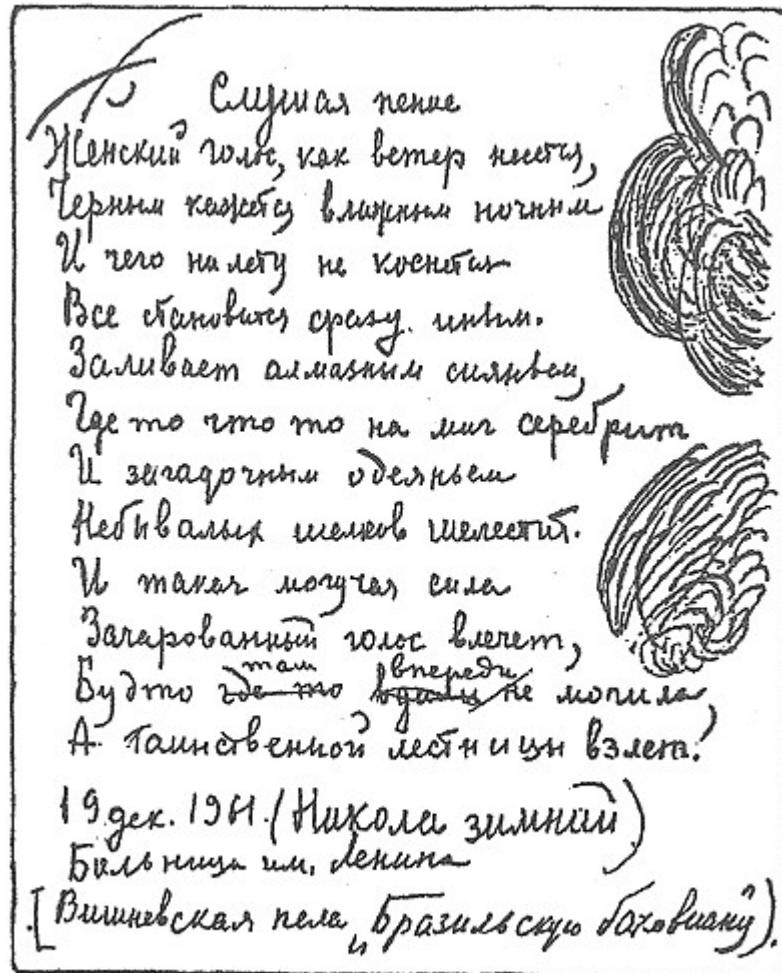 Слушая пение
Женский голос, как ветер несется,
Черным кажется влажным ночным
И чего на лету не коснется
Все становится сразу иным.
Заливает алмазным сияньем,
Где то что то на миг серебрит
И загадочным одеяньем
Небывалых шелков шелестит.
И такая могучая сила
Зачарованный голос влечет,
там впереди
Будто где то вдали не могила,
А таинственной лестницы взлет.
19 дек. 1961. (Никола зимний)
Больница им. Ленина
[Вишневская пела „Бразильскую баховиану).